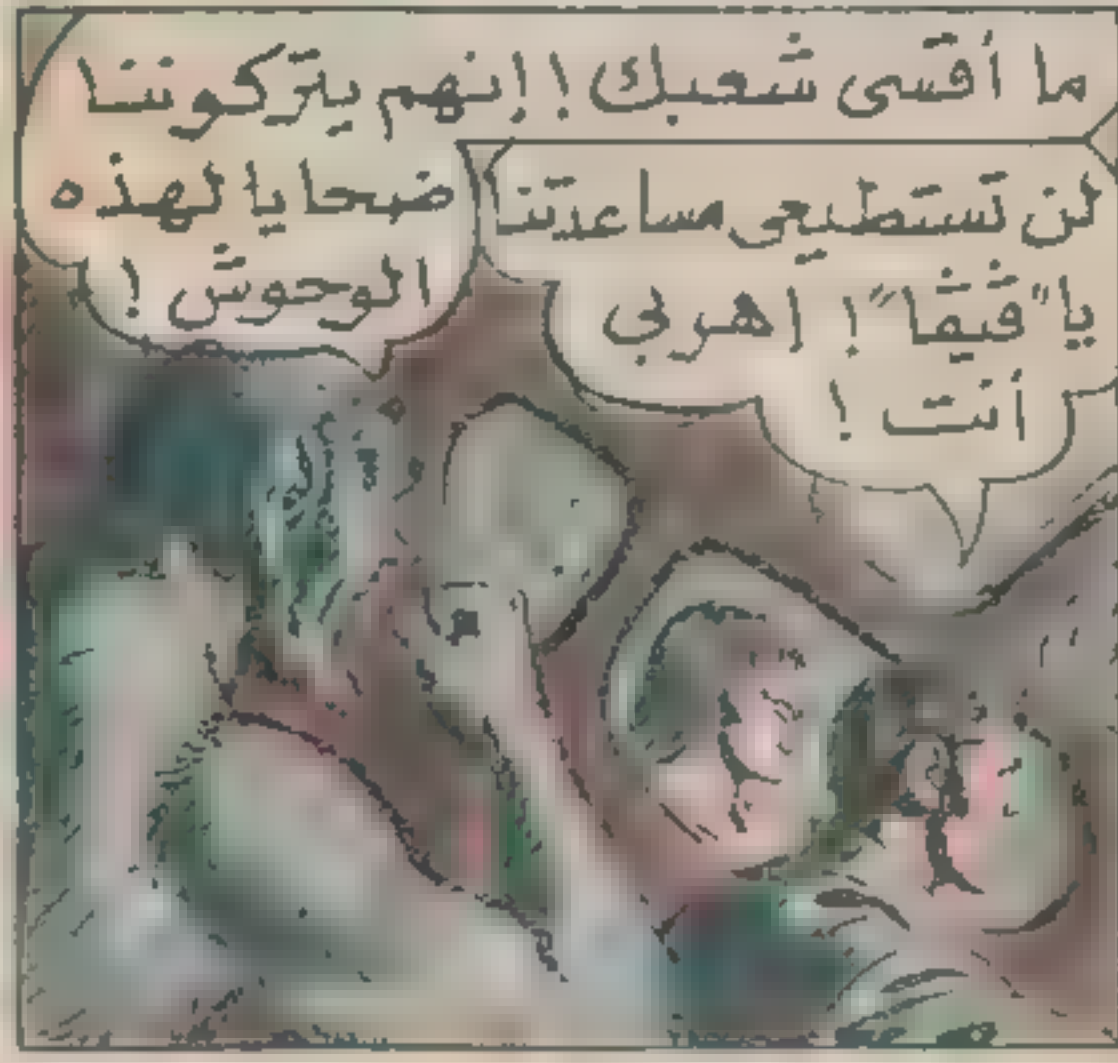 ما أقسى شعبك ! إنهم يتركوننا
ضحايا لهذه
الوحوش !
لن تستطيعى مساعدتنا
يا "ڤيڤا" ! اهربى
أنت !